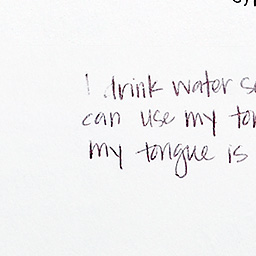 I drink water s
can use my to
my tongue is